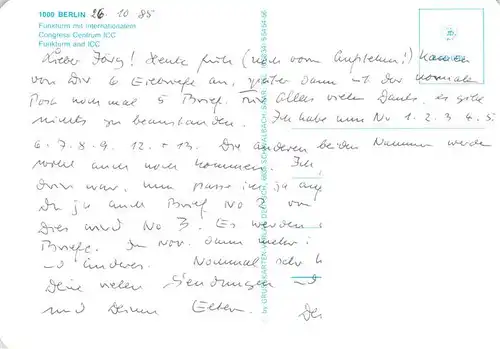 1000 BERLIN 26. 10. 85
Funkturm mit Internationalem
Congress Centrum ICC
Funkturm and ICC
Lieber Jörg! Heute früh (noch vorm Aufstehen!) kamen
von Dir 6 Eilbriefe an, später dann mit der normalen
Post nochmal 5 Briefe, für alles vielen Dank, es gibt
nichts zu beanstanden. Ich habe nun No 1. 2. 3 4. 5
6. 7. 8. 9. 12. + 13. Die anderen beiden Nummern werden
wohl auch noch kommen. Ich
drin war, nun passe ich ja auf
Du ja auch Brief No 2
Dies wird No 3. Es werden
Briefe. Im Nov. dann mehr
und anderes. Nochmal sehr
Deine vielen Sendungen und
und Deinen Eltern. Dei
by GRUSSKARTEN-VERLAG